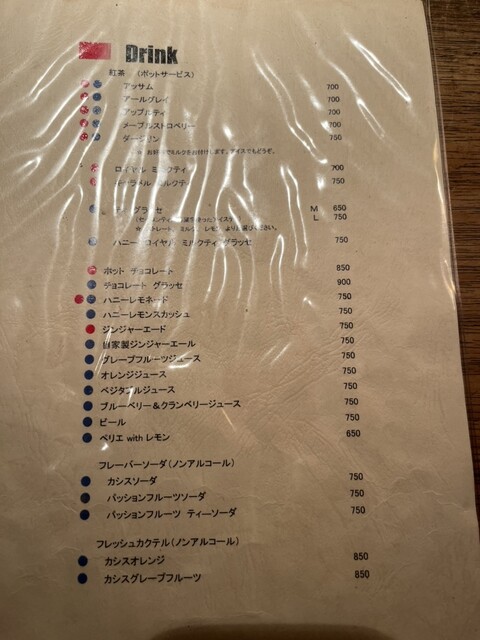 Drink
紅茶 (ポットサービス)
アッサム 700
アールグレイ 700
アップルティ 700
メープルストロベリー 700
ダージリン 750
お好みでミルクをお付けします。アイスでもどうぞ。
ロイヤル ミルクティ 700
キャラメル ミルクティ 750
グラッセ M 650
L 750
ストレート、ミルク、レモン よりお選びください。
ハニーロイヤル ミルクティ グラッセ 750
ホット チョコレート 850
チョコレート グラッセ 900
ハニーレモネード 750
ハニーレモンスカッシュ 750
ジンジャーエード 750
自家製ジンジャーエール 750
グレープフルーツジュース 750
オレンジジュース 750
ベジタブルジュース 750
ブルーベリー&クランベリージュース 750
ビール 750
ペリエ with レモン 650
フレーバーソーダ(ノンアルコール)
カシスソーダ 750
パッションフルーツソーダ 750
パッションフルーツ ティーソーダ 750
フレッシュカクテル(ノンアルコール)
カシスオレンジ 850
カシスグレープフルーツ 850